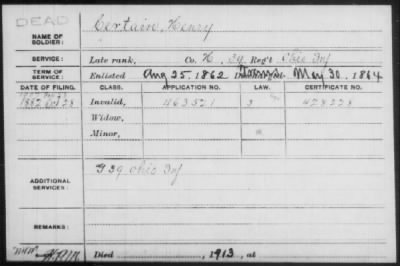 DEAD
Certain, Henry
NAME OF SOLDIER:
SERVICE: Late rank, Co. H, 39 Reg't Ohio Inf
TERM OF SERVICE: Enlisted Aug 25, 1862 May 30, 1864
DATE OF FILING. CLASS. APPLICATION NO. LAW. CERTIFICATE NO.
1882 Oct 28 Invalid, 463521 478278
Widow,
Minor,
ADDITIONAL SERVICES: F 39 Ohio Inf
REMARKS:
Died , 1913, at